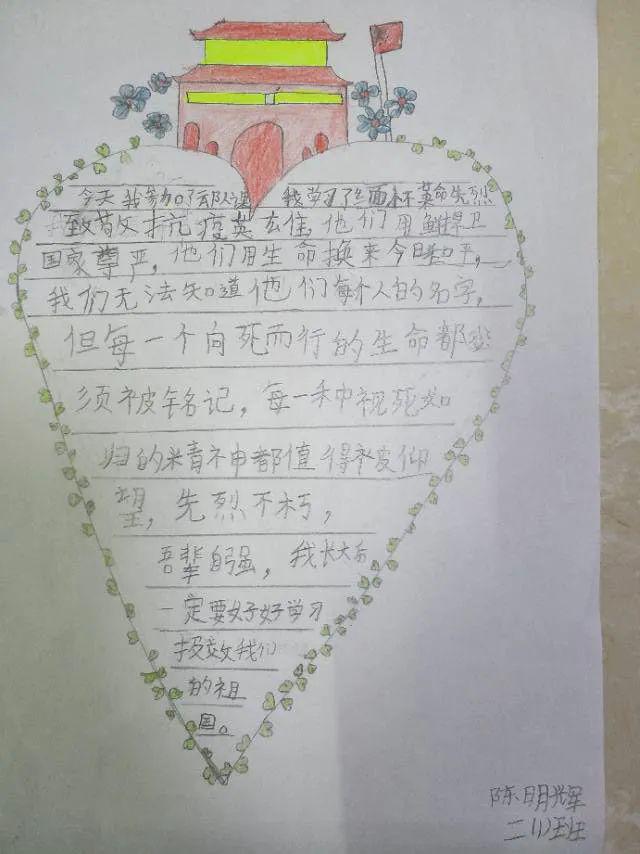 今天我参加了队课 我学习了缅怀革命先烈
致敬抗疫英雄,他们用鲜捍卫
国家尊严,他们用生命换来今日和平,
我们无法知道他们每个人的名字,
但每一个向死而行的生命都必
须被铭记,每一种视死如
归的精神都值得被仰
望,先烈不朽,
吾辈自强,我长大后
一定要好好学习
报效我们
的祖
国。
陈明辉
二(1)班